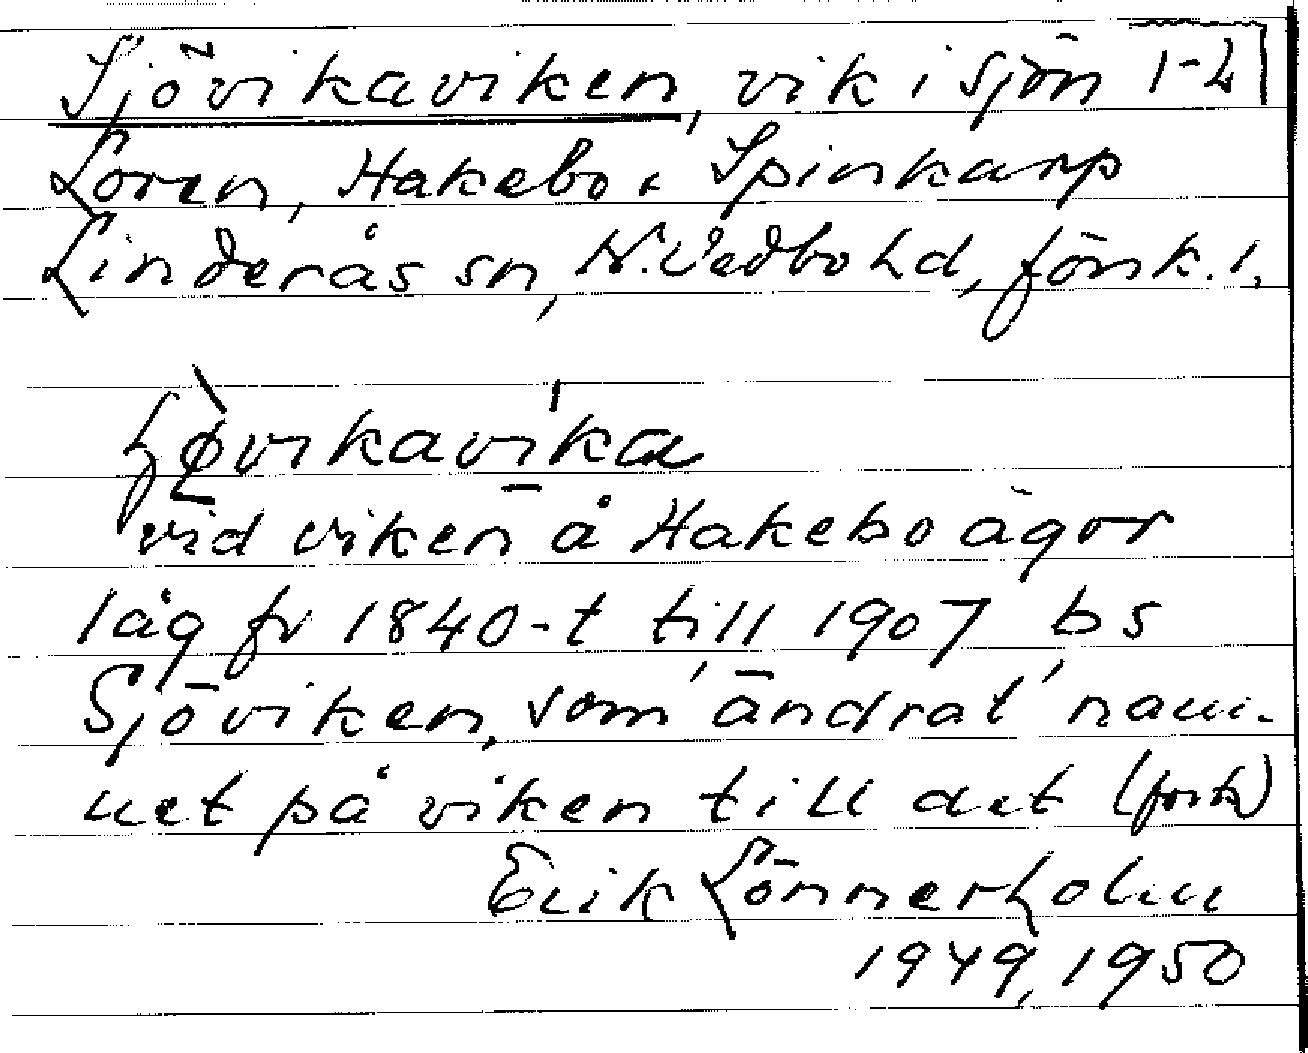 Sjövikaviken, vik i sjön 1-2
Loren, Hakebo i Spinkarp
Linderås sn, N. Vedbo hd, försk. 1.
vid viken å Hakebo ägor
låg fr 1840-t till 1907, bs
Sjöviken, som ändrat nam-
net på viken till det (forts)
Erik Lönnerholm
1949, 1950